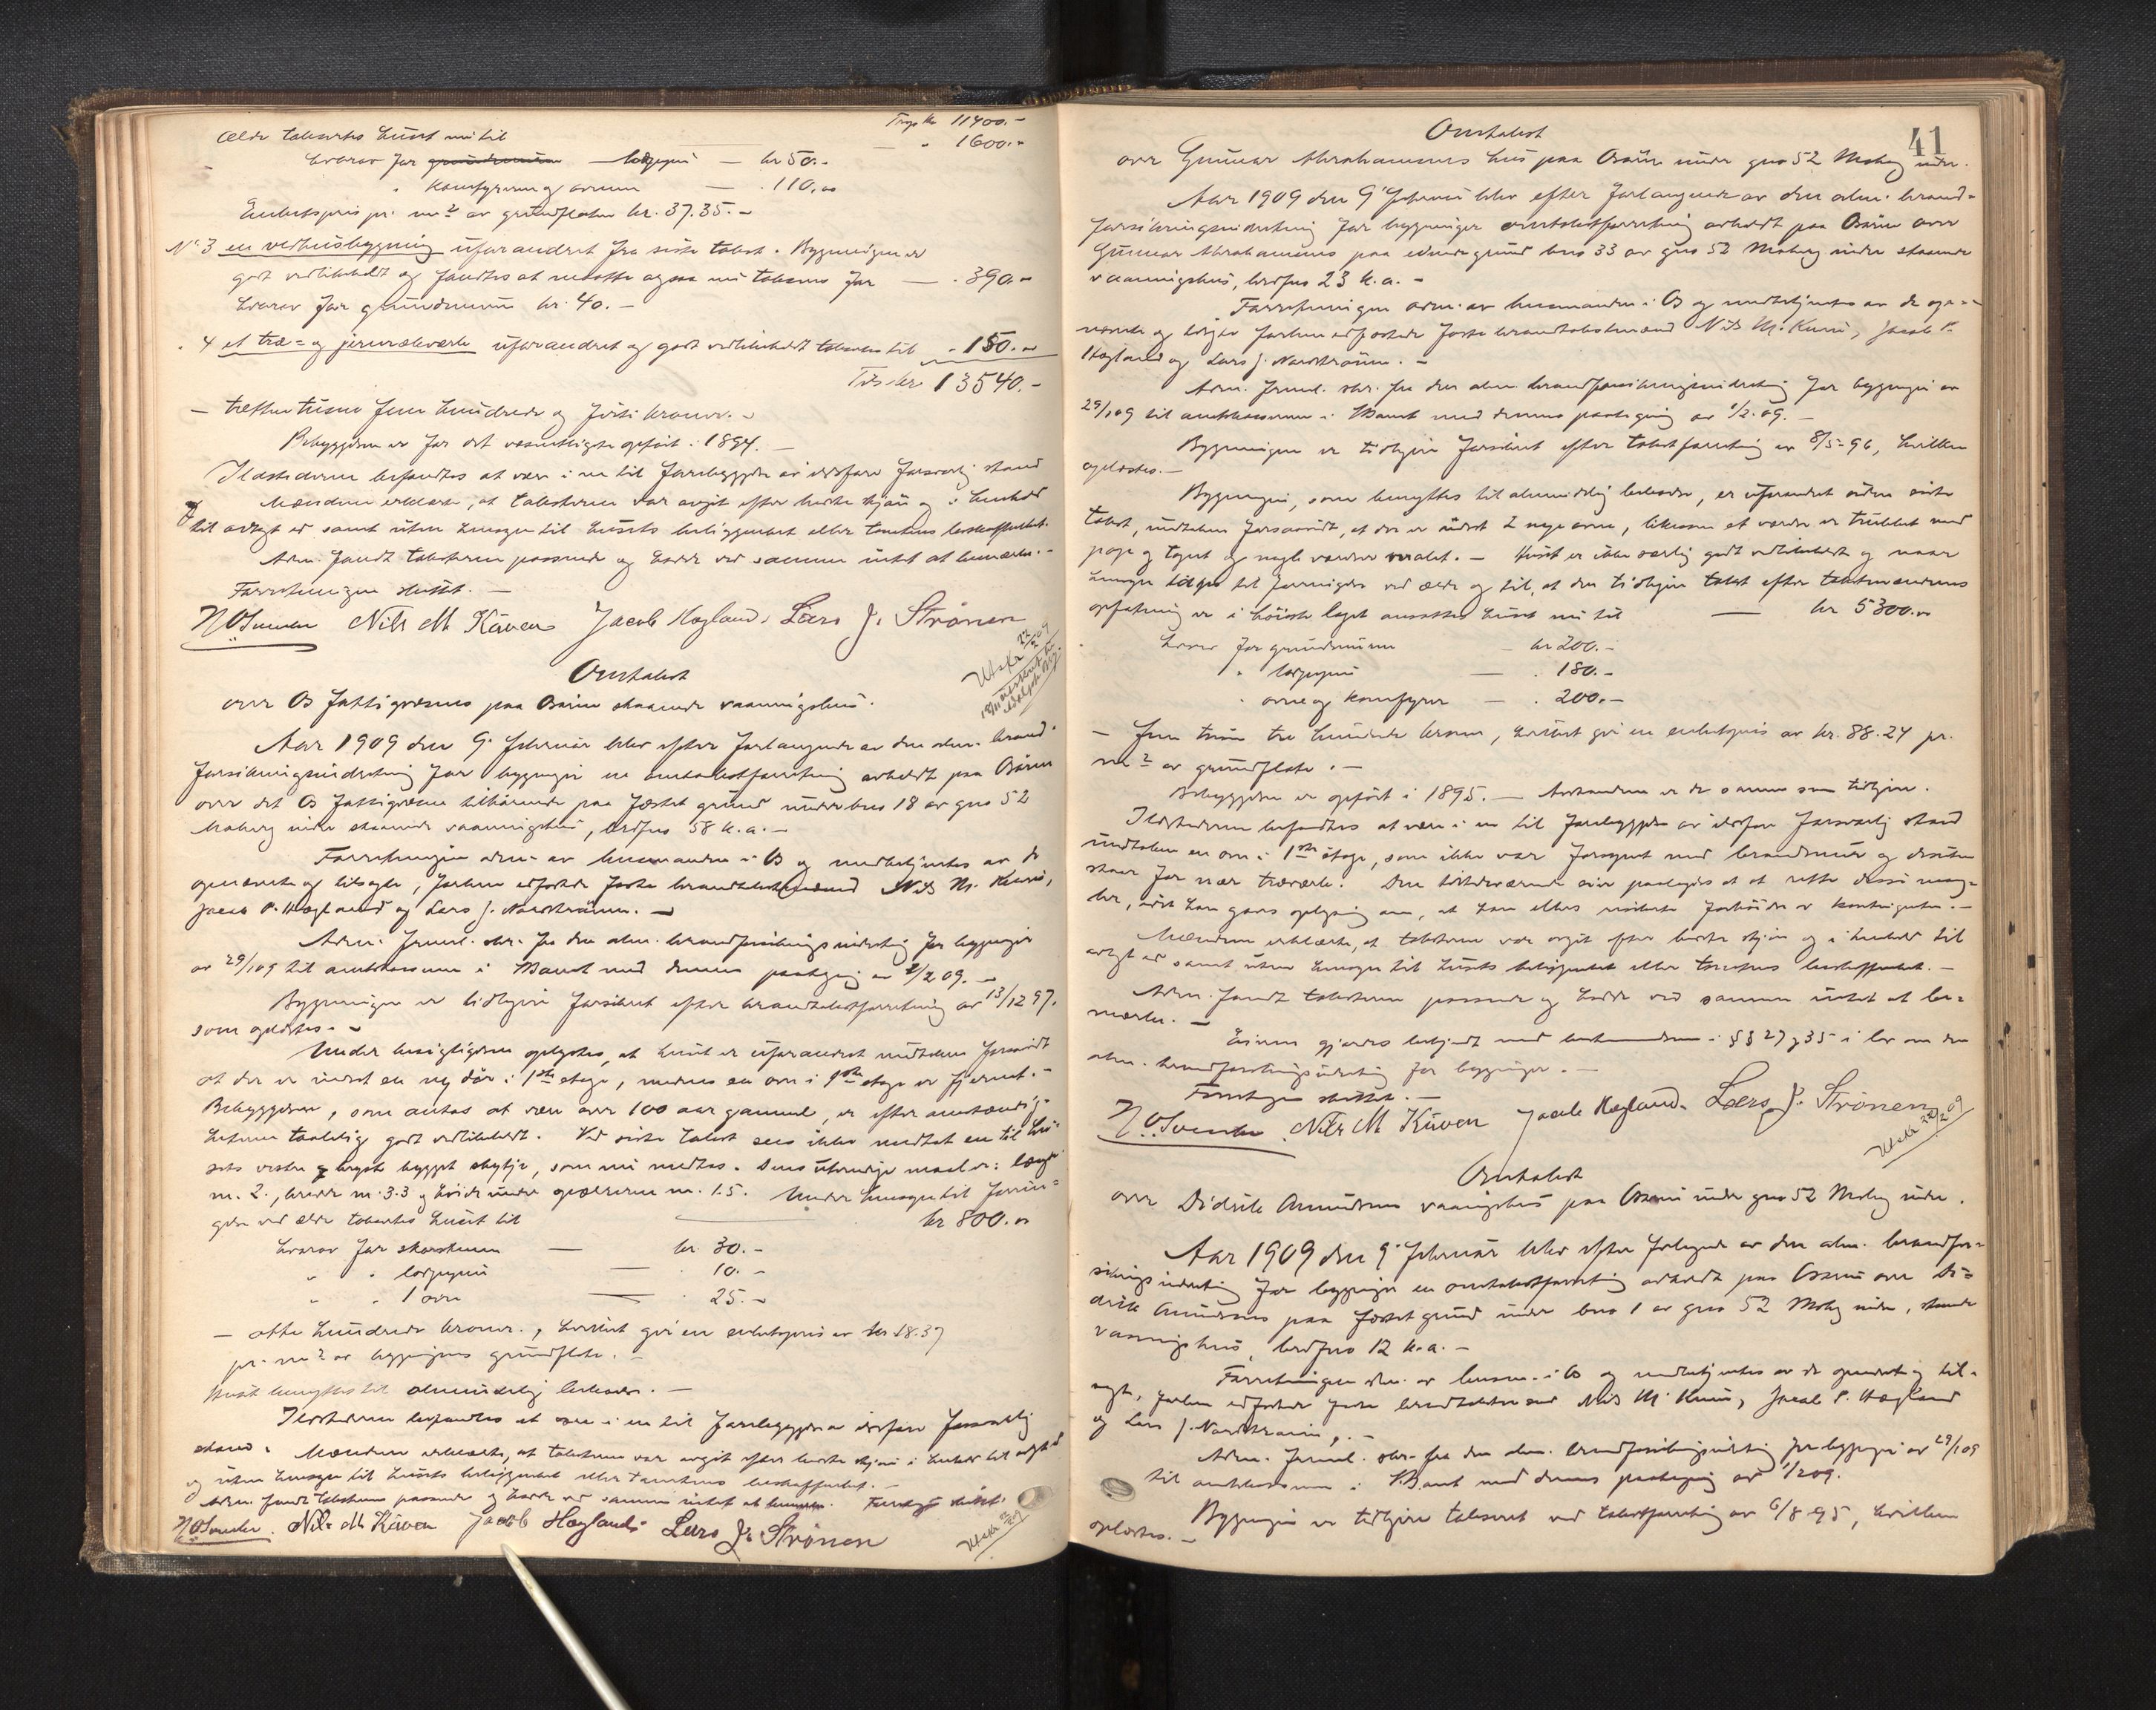 Trsp kr 11400.-
ælde takseres huset nu til — " 1600.-
hvorav for grundmuren bordgang — kr 50.-
" komfyrer og ovner — " 110.-
Enhetspris pr. m² av grundflaten kr. 37.35.-
No 3 en vedhusbygning uforandret fra siste takst. Bygningen er
godt vedlikeholdt og fandtes at maatte ogsaa nu takseres for — " 390.-
hvorav for grundmuren kr. 40.-
" 4 et træ- og jernrækverk uforandret og godt vedlikeholdt takseres til " 150.-
Tils. kr. 13540.-
— trætten tusen fem hundrede og førti kroner. -
Bebyggelsen er for det væsentligste opført i 1894.
Ildstederne befandtes at være i en til forebyggelse av ildsfare forsvarlig stand
Mændene erklærte, at taksterne var avgit efter bedste skjøn og i henhold
til avlagt ed samt uten hensyn til husets beliggenhet eller tomtens beskaffenhet.
Adm. fandt taksterne passende og hadde ved samme intet at bemærke. -
Forretningen sluttet. —
Nils M Kuven Jacob Hogland. Lars J. Strönen
Utskr 22/2 09
Omtakst
over Os fattigvæsens paa Osøren staaende vaaningshus.
Aar 1909 den 9. februar blev efter forlangende av den alm. brand-
forsikringsindretning for bygninger en omtakstforretning avholdt paa Osøren
over det Os fattigvæsen tilhørende paa fæstet grund under bno 18 av gno 52
Moberg indre staaende vaaningshus, brdfno 58 k.a. —
Forretningen adm. av lensmanden i Os og medbetjentes av de
opnævnte og tilsagte, forhen edfæstede faste brandtakstmænd Nils M. Kuven,
Jacob P. Hægland og Lars J. Nordstrønen. —
Adm. freml. skr. fra den alm. brandforsikringsindretning for bygninger
av 29/1 09 til amtskassereren i S. Bamt med dennes paategning av 1/2 09. —
Bygningen er tidligere forsikret efter brandtakstforretning av 13/12 97.
som oplæstes. -
Under besigtigelsen oplystes, at huset er uforandret undtaken forsaavidt
at der er indsat en ny dør i 1ste etage, medens en ovn i 1ste etage er fjernet. -
Bebyggelsen, som antas at være over 100 aar gammel, er efter omstændig-
heterne taalelig godt vedlikeholdt. Ved siste takst sees ikke medtat en til hu-
sets vestre bygget skytje, som nu medtas. Dens utvendige maal er: længde
m. 2., bredde m. 3.3 og høide under gesimserne m. 1.5. Under hensyn til forrin-
gelse ved ælde takseres huset til — kr 800.-
hvorav for skorstenen — kr. 30.-
" " bordgang — " 10.-
" " 1 ovn — " 25.-
— otte hundrede kroner. , hvilket gir en enhetspris av kr 18.37
pr. m² av bygningens grundflate. —
Huset benyttes til almindelig beboelse. —
Ildstederne befandtes at være i en til forebyggelse av ildsfare forsvarlig
stand. Mændene erklærte, at taksterne var avgit efter bedste skjøn i henhold til avlagt ed
og uten hensyn til husets beliggenhet eller tomtens beskaffenhet. —
Adm. fandt taksterne passende og hadde ved samme intet at bemærke. Forretn. sluttet.
Nils M Kuven Jacob Hægland. Lars J. Strönen
Utskr 22/2 09
41
Omtakst
over Gunnar Abrahamsens hus paa Osøren under gno 52 Moberg indre.
Aar 1909 den 9 februar blev efter forlangende av den alm. brand-
forsikringsindretning for bygninger omtakstforretning avholdt paa Osøren over
Gunnar Abrahamsens paa eiendegrund bno 33 av gno 52 Moberg indre staaende
vaaningshus, brdfno 23 k.a. -
Forretningen adm. av lensmanden i Os og medbetjentes av de op-
nævnte og tilsagte forhen edfæstede faste brandtakstmænd Nils M. Kuven, Jacob P.
Hægland og Lars J. Nordstrønen. -
Adm. freml. skr. fra den alm. brandforsikringsindretning for bygninger av
29/1 09 til amtskassereren i S. Bamt med dennes paategning av 1/2 09. —
Bygningen er tidligere forsikret efter takstforretning av 8/5-96, hvilken
oplæstes. —
Bygningen, som benyttes til almindelig beboelse, er uforandret siden siste
takst, undtaken forsaavidt, at der er indsat 2 nye ovne, likesom et værelse er trukket med
papp og tapet og nogle værelser malet. — Huset er ikke særlig godt vedlikeholdt og naar
hensyn tages til forringelse ved ælde og til, at den tidligere takst efter takstmændenes
opfatning er i høieste laget ansættes huset nu til — kr 5300.-
hvorav for grundmuren — kr 200.-
" bordgang — " 180.-
" ovne og komfyrer — " 200.-
— fem tusen tre hundrede kroner, hvilket gir en enhetspris av kr. 88.24 pr.
m² av grundflate. —
Bebyggelsen er opført i 1895. — Avstandene er de samme som tidligere.
Ildstederne befandtes at være i en til forebyggelse av ildsfare forsvarlig stand
undtaken en ovn i 1ste etage, som ikke var forsynt med brandmur og desuten
staar for nær træverk. Den tilstedeværende eier paalagdes at rette disse mang-
ler, idet han gaves oplysning om, at han ellers risikerte forhøielse av kontingenten. —
Mændene erklærte, at taksterne var avgit efter bedste skjøn og i henhold til
avlagt ed samt uten hensyn til husets beliggenhet eller tomtens beskaffenhet. —
Adm. fandt taksterne passende og hadde ved samme intet at be-
mærke. —
Eieren gjordes bekjendt med bestemmelsen i §§ 27 og 35 i lov om den
alm. brandforsikringsindretning for bygninger. —
Forretningen sluttet. —
Nils M Kuven Jacob Hægland. Lars J. Strönen
Utskr 22/2 09
Omtakst
over Didrik Amundsens vaaningshus paa Osøren under gno 52 Moberg indre.
Aar 1909 den 9. februar blev efter forlangende av den alm. brandfor-
sikringsindretning for bygninger en omtakstforretning avholdt paa Osøren over Di-
drik Amundsens paa fæstet grund under bno 1 av gno 52 Moberg indre, staaende
vaaningshus, brdfno 12 k.a. —
Forretningen adm. av lensm. i Os og medbetjentes av de opnævnte og til-
sagte, forhen edfæstede faste brandtakstmænd Nils M. Kuven, Jacob P. Hægland
og Lars J. Nordstrønen. —
Adm. freml. skr. fra den alm. brandforsikringsindretning for bygninger av 29/1 09
til amtskassereren i S. Bamt med dennes paategning av 1/2 09.
Bygningen er tidligere takseret ved takstforretning av 6/8 95, hvilken
oplæstes. —